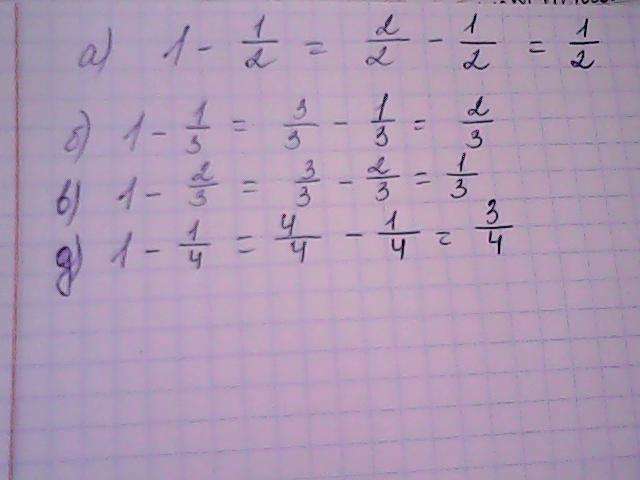 а) 1 - 1/2 = 2/2 - 1/2 = 1/2
б) 1 - 1/3 = 3/3 - 1/3 = 2/3
в) 1 - 2/3 = 3/3 - 2/3 = 1/3
д) 1 - 1/4 = 4/4 - 1/4 = 3/4